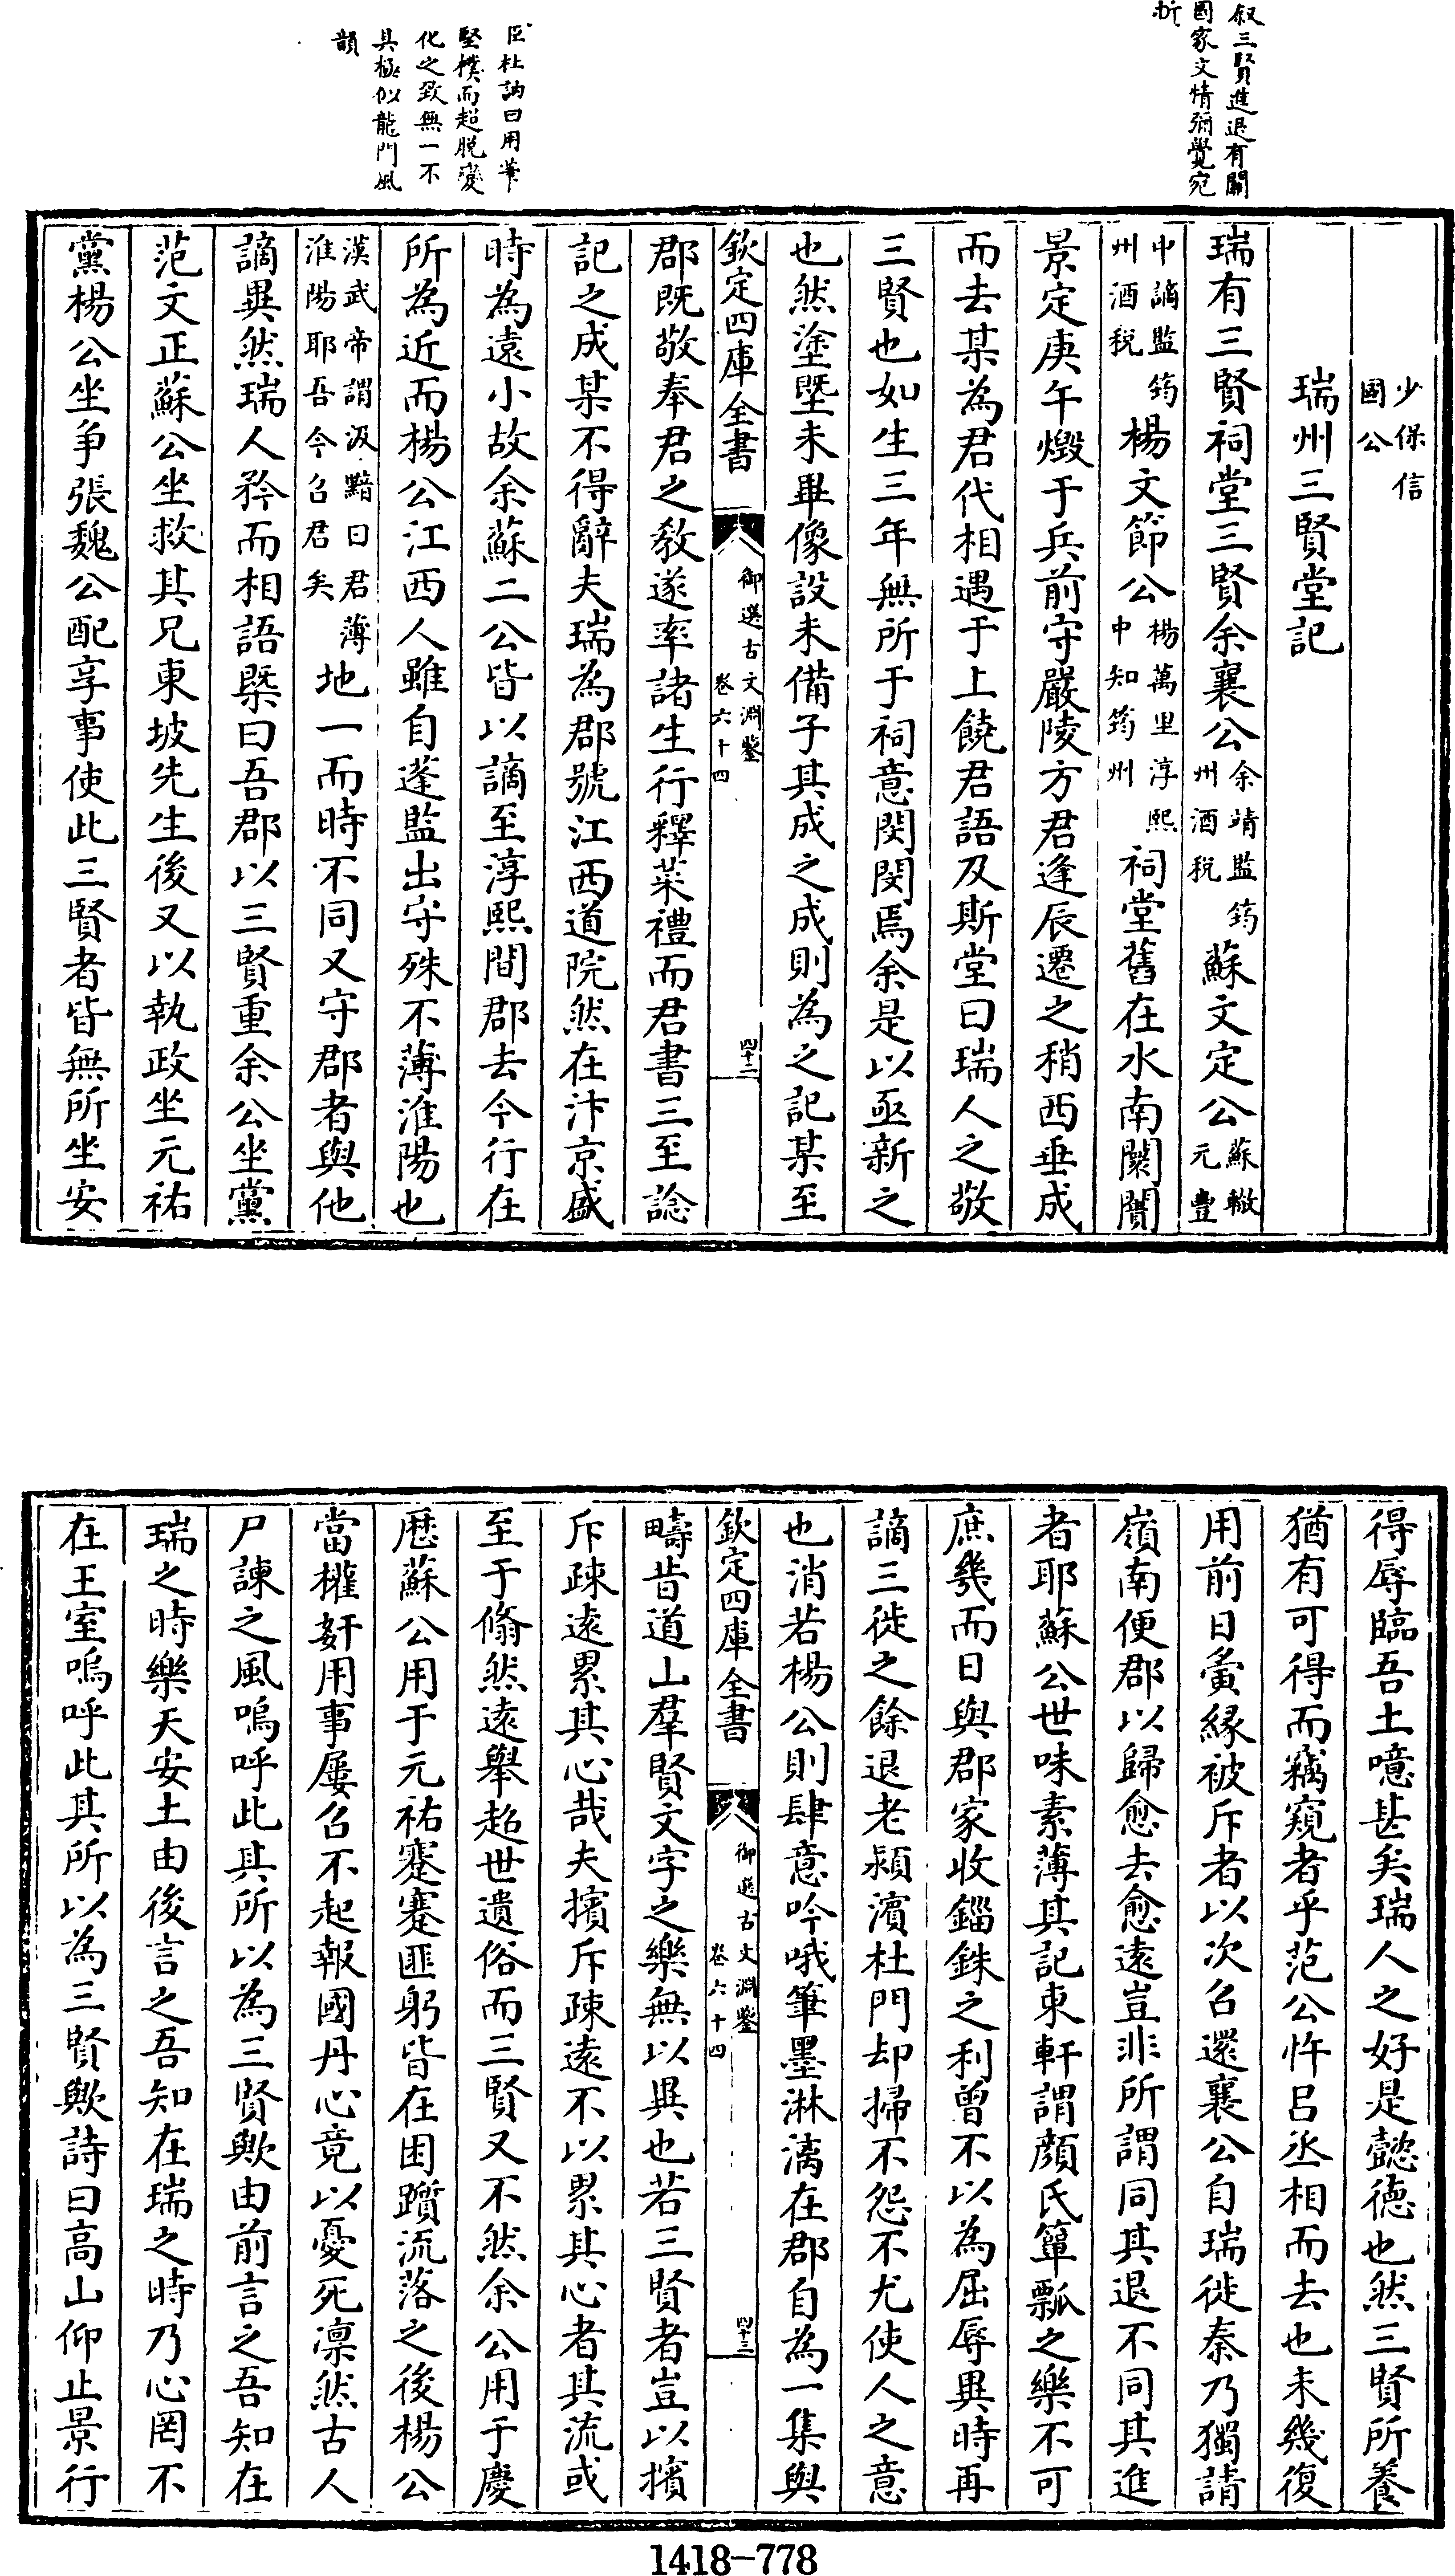 叙三賢進退有關
國家文情彌覺宛
折
臣杜訥曰用筆
堅樸而超脱變
化之致無一不
具極似龍門風
韻
少保信
國公
瑞州三賢堂記
瑞有三賢祠堂三賢余襄公余靖監筠州酒税蘇文定公蘇轍元豐
中謫監筠州酒税楊文節公楊萬里淳熙中知筠州祠堂舊在水南闤闠
景定庚午燬于兵前守嚴陵方君逢辰遷之稍西垂成
而去某為君代相遇于上饒君語及斯堂曰瑞人之敬
三賢也如生三年無所于祠意閔閔焉余是以亟新之
也然塗塈未畢像設未備子其成之成則為之記某至
欽定四庫全書
御選古文淵鑒
卷六十四
四十二
郡既敬奉君之教遂率諸生行釋菜禮而君書三至諗
記之成某不得辭夫瑞為郡號江西道院然在汴京盛
時為遠小故余蘇二公皆以謫至淳熙間郡去今行在
所為近而楊公江西人雖自蓬監出守殊不薄淮陽也
漢武帝謂汲黯曰君薄淮陽耶吾今召君矣地一而時不同又守郡者與他
謫異然瑞人矜而相語槩曰吾郡以三賢重余公坐黨
范文正蘇公坐救其兄東坡先生後又以執政坐元祐
黨楊公坐争張魏公配享事使此三賢者皆無所坐安
得辱臨吾土噫甚矣瑞人之好是懿德也然三賢所養
猶有可得而竊窺者乎范公忤吕丞相而去也未幾復
用前日夤縁被斥者以次召還襄公自瑞徙泰乃獨請
嶺南便郡以歸愈去愈遠豈非所謂同其退不同其進
者耶蘇公世味素薄其記東軒謂顔氏簞瓢之樂不可
庶幾而日與郡家收錙銖之利曾不以為屈辱異時再
謫三徙之餘退老潁濱杜門却掃不怨不尤使人之意
也消若楊公則肆意吟哦筆墨淋漓在郡自為一集與
欽定四庫全書
御選古文淵鑒
卷六十四
四十三
疇昔道山羣賢文字之樂無以異也若三賢者豈以擯
斥疎遠累其心哉夫擯斥疎遠不以累其心者其流或
至于翛然遠舉超世遺俗而三賢又不然余公用于慶
厯蘇公用于元祐蹇蹇匪躬皆在困躓流落之後楊公
當權奸用事屢召不起報國丹心竟以憂死凛然古人
尸諫之風嗚呼此其所以為三賢歟由前言之吾知在
瑞之時樂天安土由後言之吾知在瑞之時乃心罔不
在王室嗚呼此其所以為三賢歟詩曰高山仰止景行
1418-778